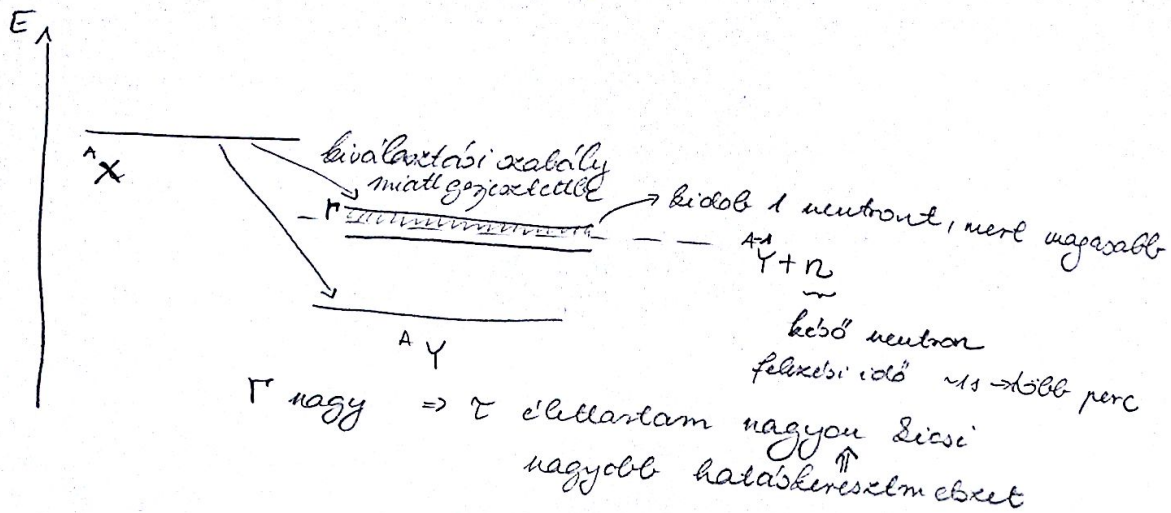 E
ᴬX
kiválasztási szabály
miatt gerjesztettbe
Γ
kidob 1 neutront, mert magasabb
ᴬ⁻¹Y + n
késő neutron
felezési idő ~1s → több perc
ᴬY
Γ nagy ⇒ τ élettartam nagyon kicsi
⇑
nagyobb hatáskeresztmetszet